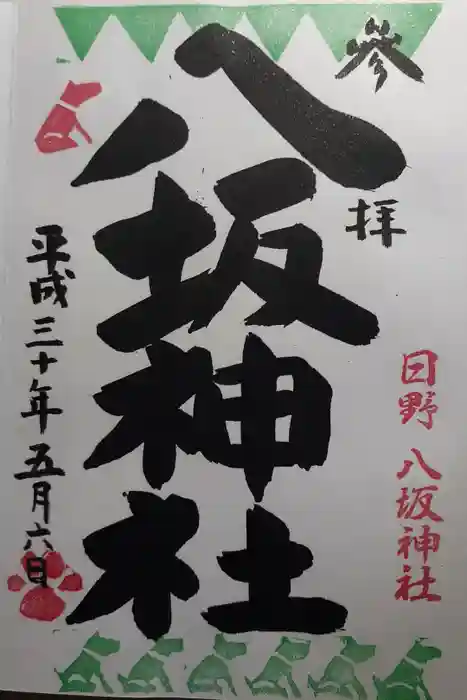 參拝
日野 八坂神社
八坂神社
平成三十年五月六日